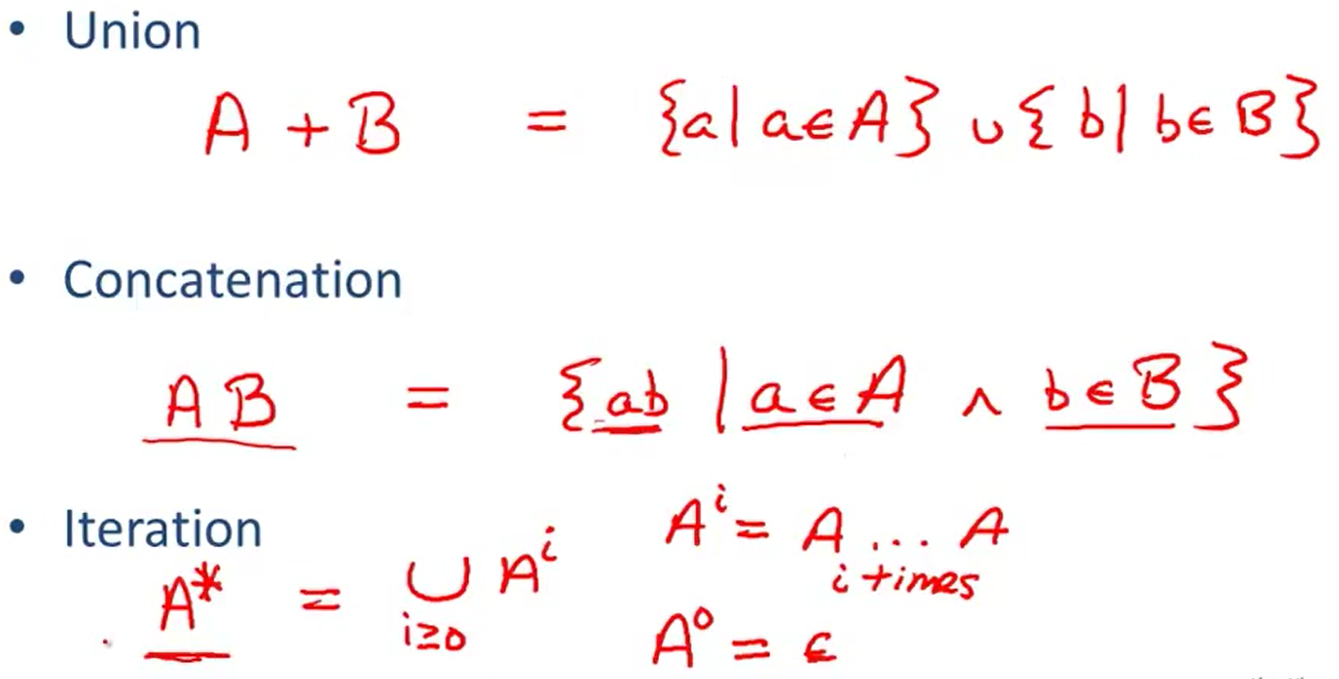 • Union
A + B = {a | a ∈ A} ∪ {b | b ∈ B}
• Concatenation
AB = {ab | a ∈ A ∧ b ∈ B}
• Iteration
A* = ⋃ Aⁱ
i≥0
Aⁱ = A ... A
i times
A⁰ = ε